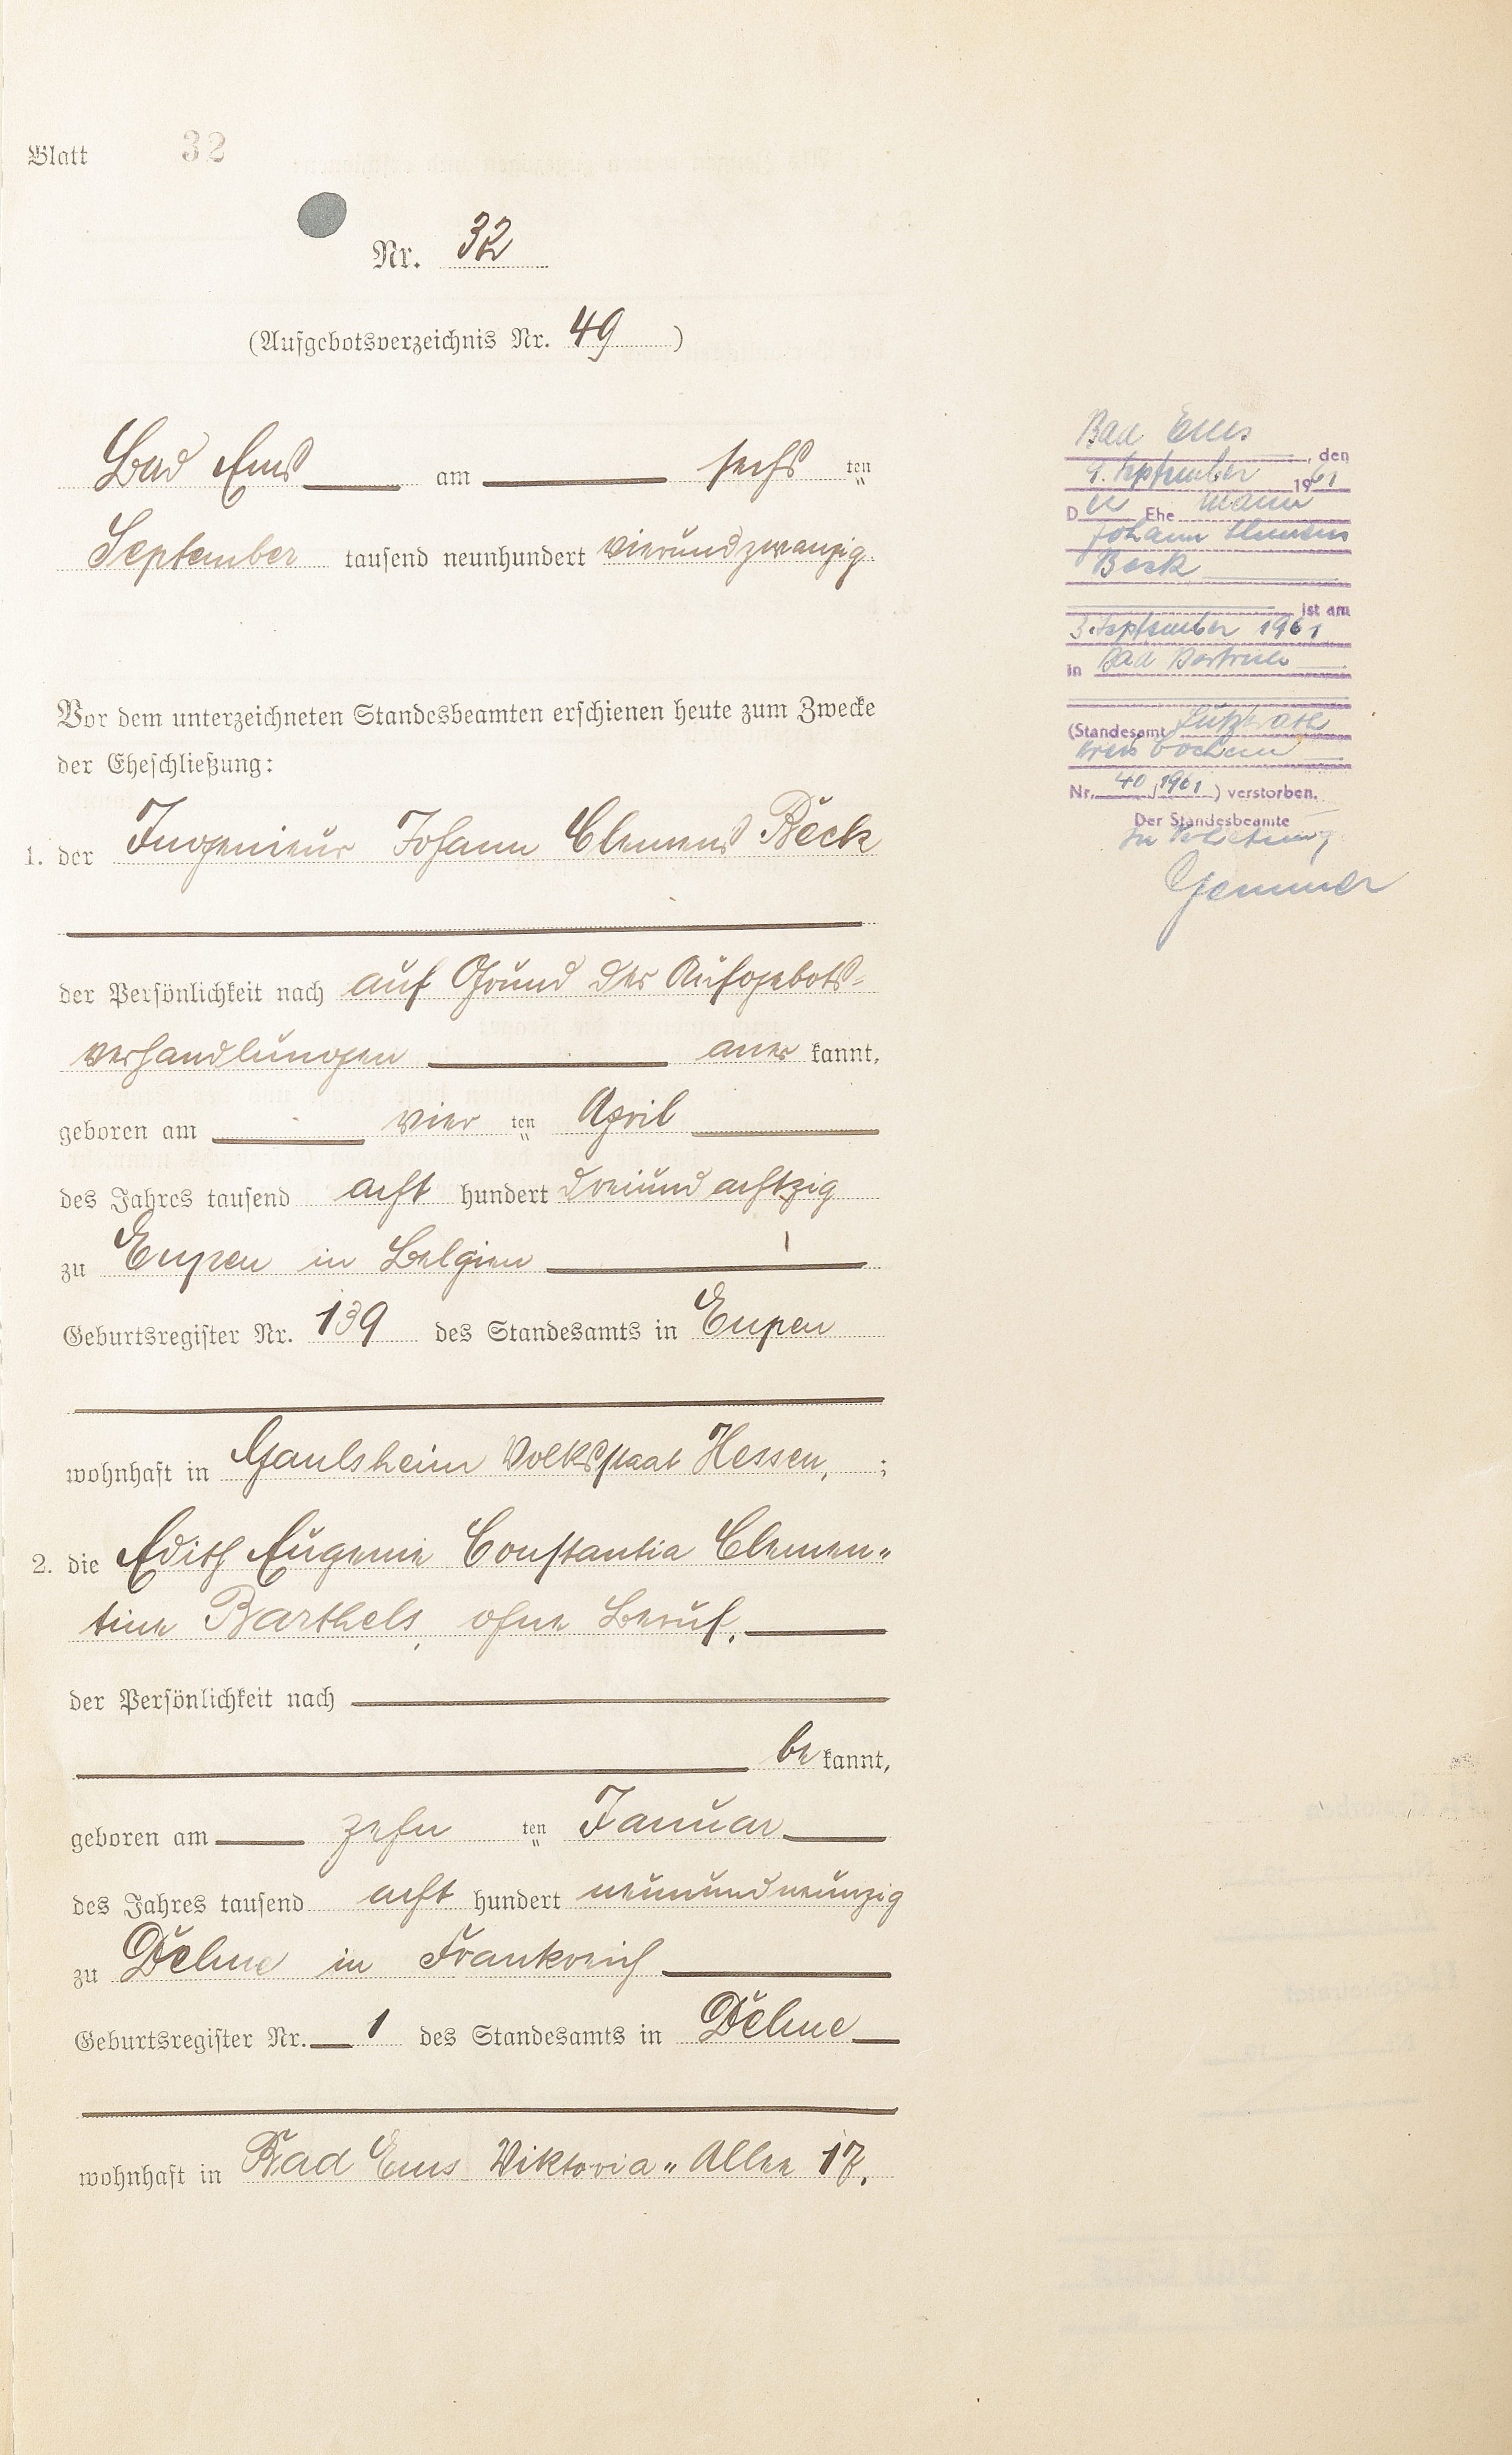 Blatt 32
Nr. 32
(Aufgebotsverzeichnis Nr. 49 )
Bad Ems am sechs ten
September tausend neunhundert vierundzwanzig.
Vor dem unterzeichneten Standesbeamten erschienen heute zum Zwecke
der Eheschließung:
1. der Ingenieur Johann Clemens Beck
der Persönlichkeit nach auf Grund der Aufgebots-
verhandlungen aner kannt,
geboren am vier ten April
des Jahres tausend acht hundert dreiundachtzig
zu Eupen in Belgien
Geburtsregister Nr. 139 des Standesamts in Eupen
wohnhaft in Gaulsheim Volksstaat Hessen, ;
2. die Edith Eugenie Constantia Clemen"
tine Barthels, ohne Beruf,
der Persönlichkeit nach
be kannt,
geboren am zehn ten Januar
des Jahres tausend acht hundert neunundneunzig
zu Delme in Frankreich
Geburtsregister Nr. 1 des Standesamts in Delme
wohnhaft in Bad Ems Viktoria" Allee 17.
Bad Ems , den
September 1961
D er Ehe mann
Johann Clemens
Beck
ist am
3. September 1961
in Bad Bertrich
(Standesamt Lutzerath
Kreis Cochem
Nr. 40/1961 ) verstorben.
Der Standesbeamte
In Vertretung
Gemmer